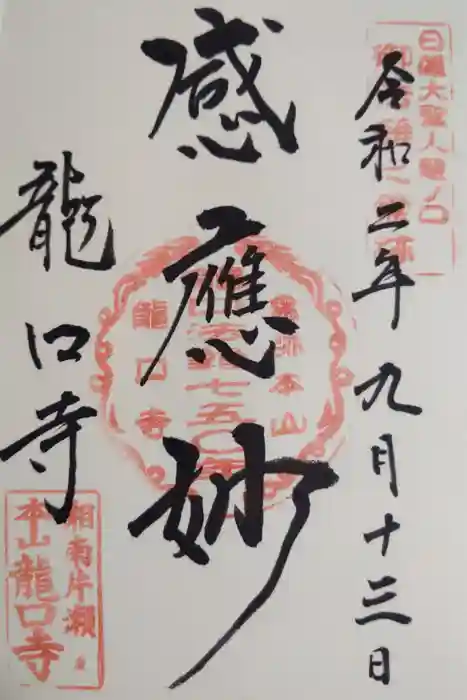 日蓮大聖人龍ノ口
御法難之霊跡
令和二年九月十三日
感應妙
霊跡本山
法難七五〇年
龍口寺
龍口寺
相南片瀬
本山龍口寺